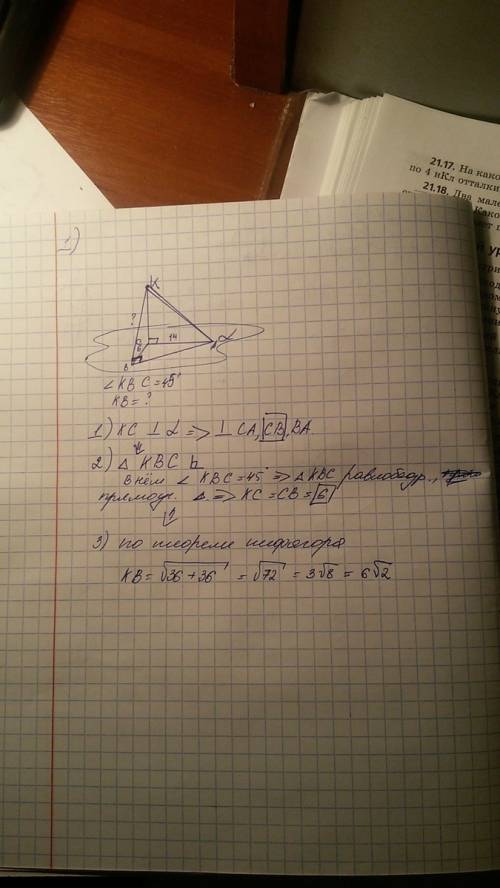 21.17. На како
по 4 нКл отталки
21.18. Два мале
Како
1)
K
?
6
14
α
B
∠ KBC = 45°
KB = ?
1) KC ⊥ α => ⊥ CA, CB, BA
2) Δ KBC
В нём ∠ KBC = 45° => Δ KBC равнобедр.,
прямоуг. Δ => KC = CB = 6
3) по теореме пифагора
KB = √36 + 36 = √72 = 3√8 = 6√2